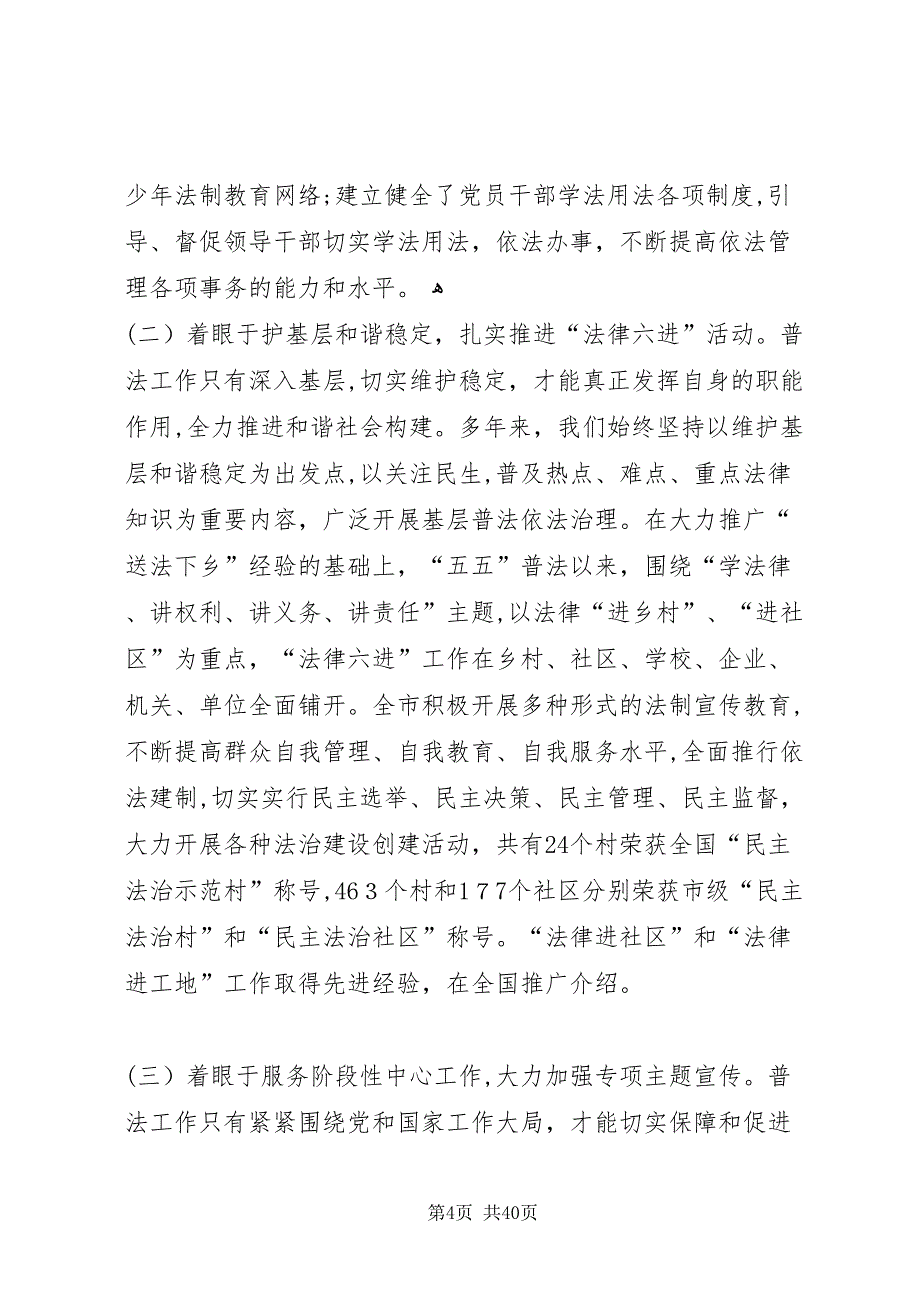 少年法制教育网络;建立健全了党员干部学法用法各项制度,引
导、督促领导干部切实学法用法，依法办事，不断提高依法管
理各项事务的能力和水平。 ﻫ
(二）着眼于护基层和谐稳定，扎实推进“法律六进”活动。普
法工作只有深入基层,切实维护稳定，才能真正发挥自身的职能
作用,全力推进和谐社会构建。多年来，我们始终坚持以维护基
层和谐稳定为出发点,以关注民生,普及热点、难点、重点法律
知识为重要内容，广泛开展基层普法依法治理。在大力推广“
送法下乡”经验的基础上，“五五”普法以来，围绕“学法律
、讲权利、讲义务、讲责任”主题,以法律“进乡村”、“进社
区”为重点，“法律六进”工作在乡村、社区、学校、企业、
机关、单位全面铺开。全市积极开展多种形式的法制宣传教育,
不断提高群众自我管理、自我教育、自我服务水平,全面推行依
法建制,切实实行民主选举、民主决策、民主管理、民主监督，
大力开展各种法治建设创建活动，共有24个村荣获全国“民主
法治示范村”称号,46３个村和1７7个社区分别荣获市级“民主
法治村”和“民主法治社区”称号。“法律进社区”和“法律
进工地”工作取得先进经验，在全国推广介绍。
(三）着眼于服务阶段性中心工作,大力加强专项主题宣传。普
法工作只有紧紧围绕党和国家工作大局，才能切实保障和促进
第4页 共40页